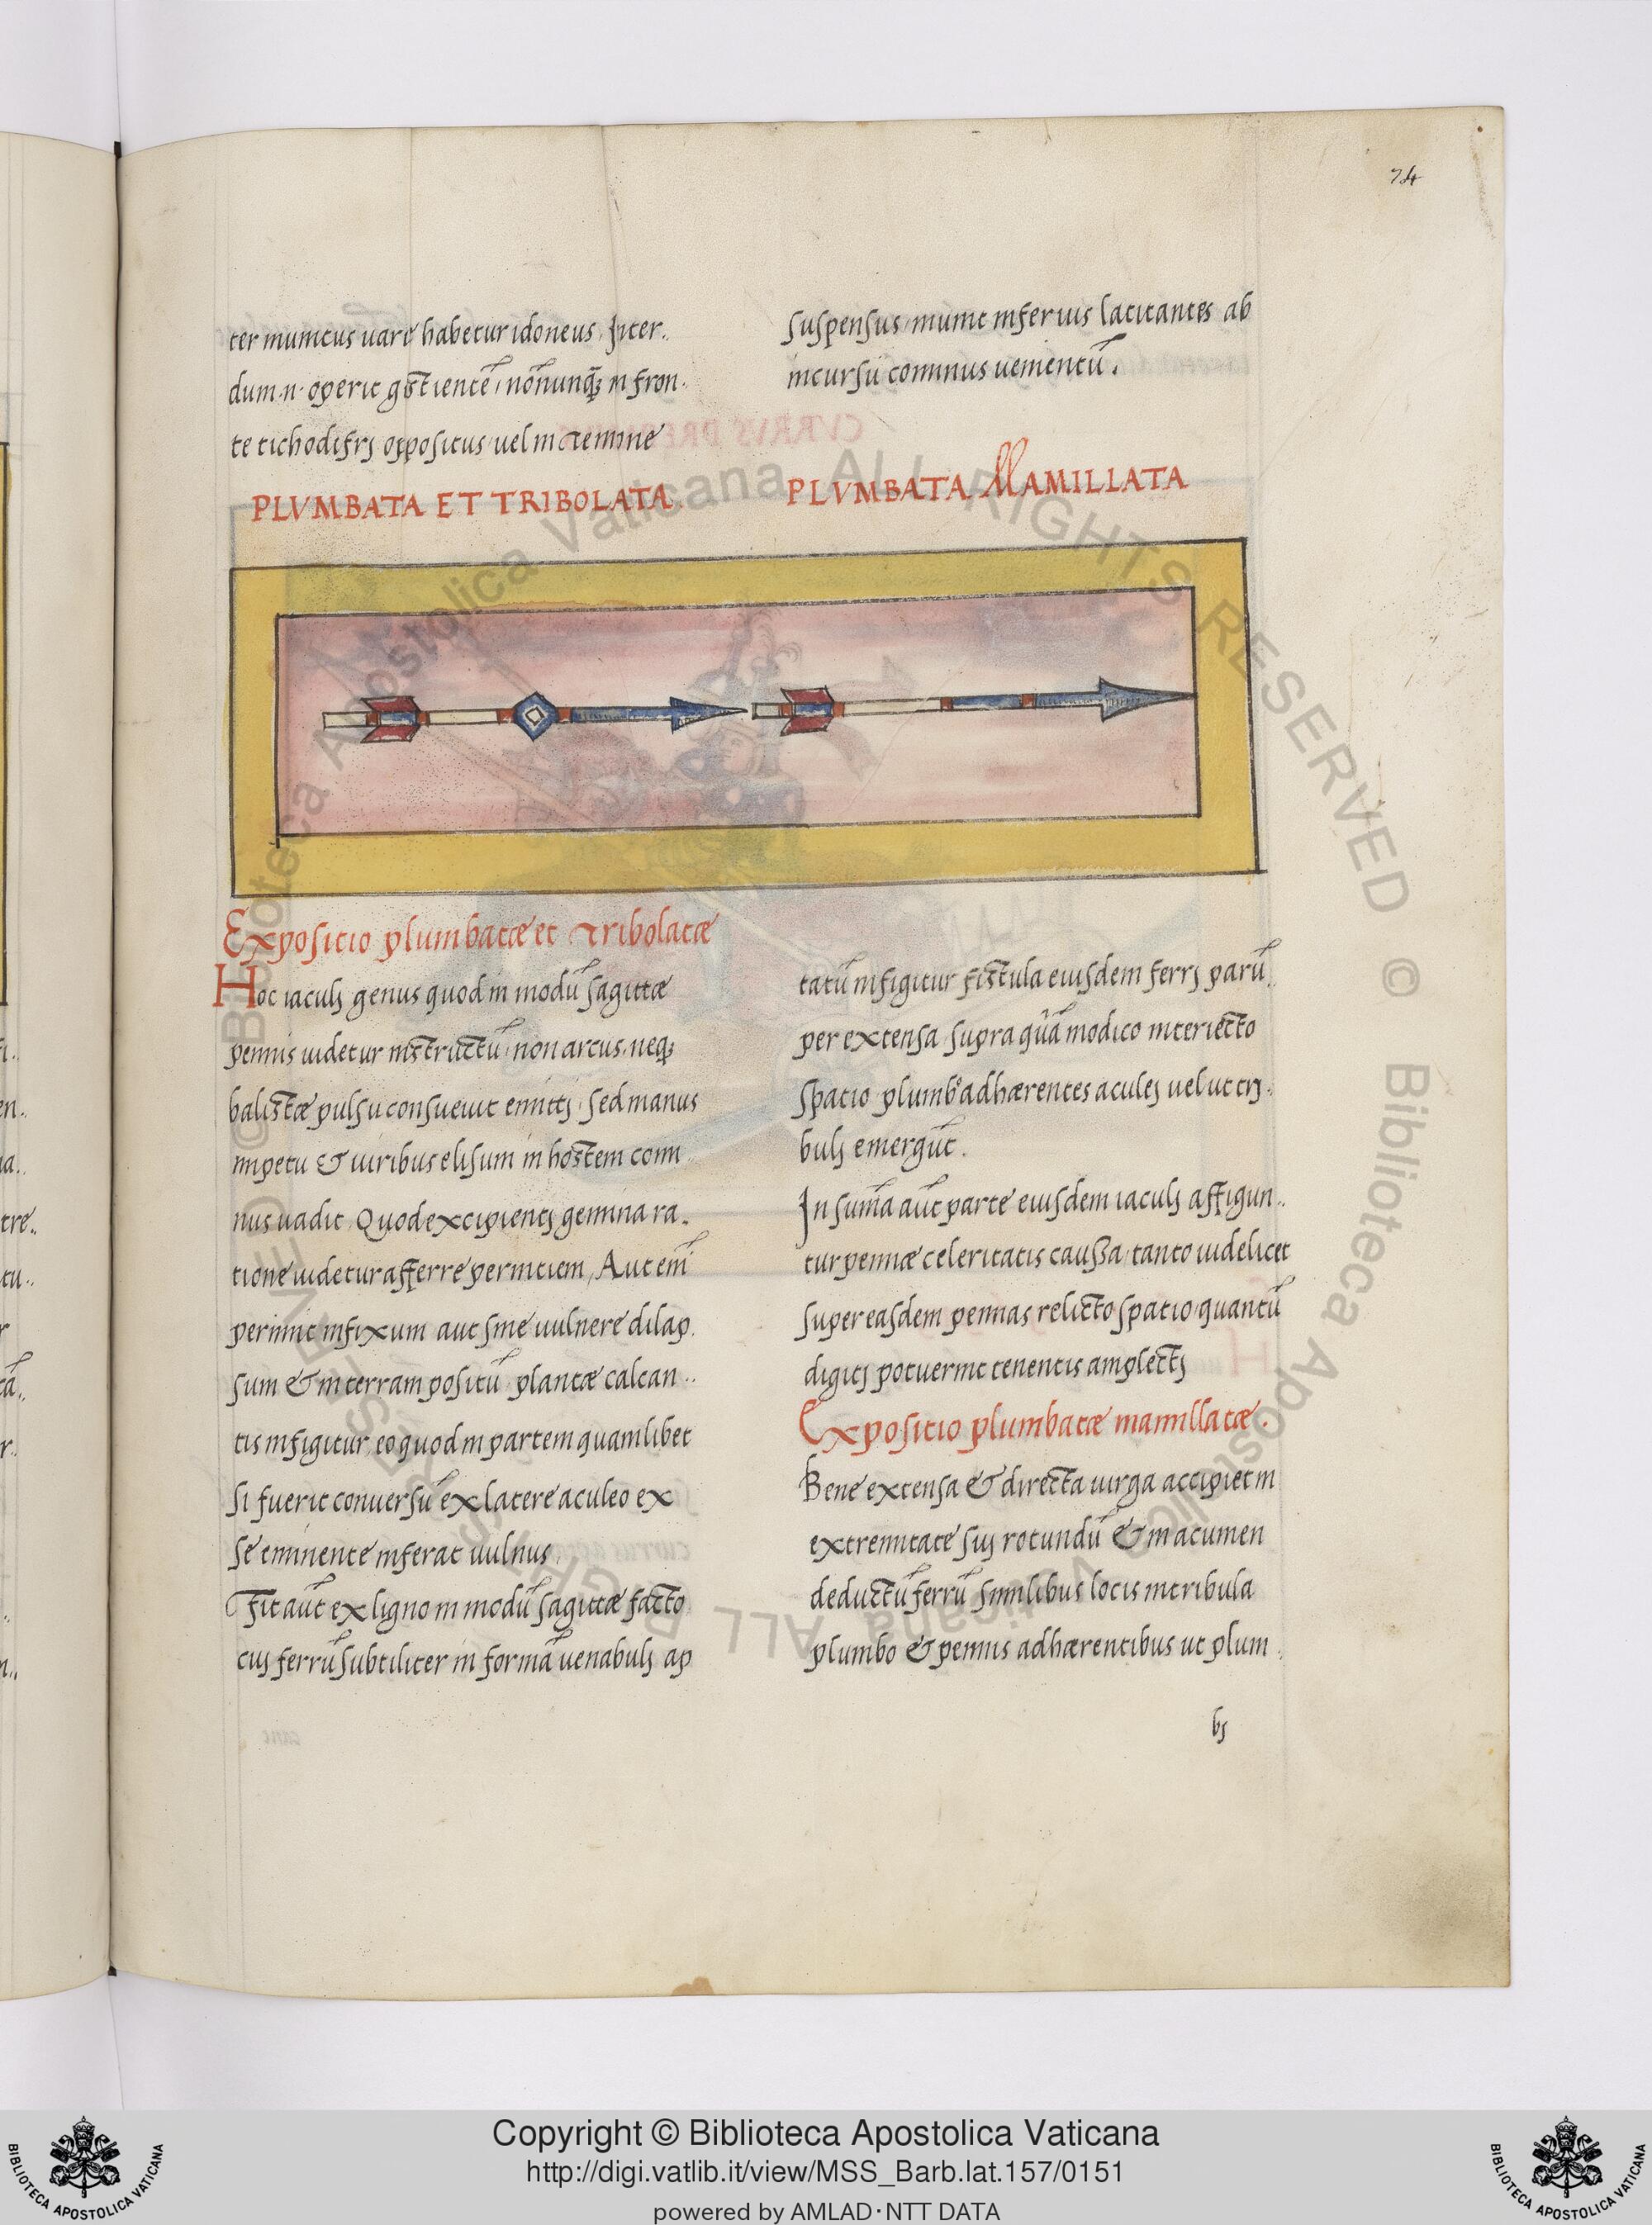 74
ter munitus uarie habetur idoneus. Inter..
dum .n. operit gestientē, nōnunq̃ȝ in fron.
te tichodifrj oppositus uel in ctemine
suspensus, munit inferius latitantes ab
incursu cominus uenientū.
PLVMBATA ET TRIBOLATA.
PLVMBATA MAMILLATA
Expositio plumbatæ et tribolatæ
Hoc iaculj genus quod in modū sagittæ
pennis uidetur instructū, non arcus, neqȝ
balistæ pulsu consueuit emittj, sed manus
impetu & uiribus elisum in hostem comi
nus uadit, Quod excipientj gemina ra.
tione uidetur afferre pernitiem, Aut em̄
perimit infixum aut sine uulnere dilap.
sum & in terram positū plantæ calcan..
tis infigitur, eo quod in partem quamlibet
si fuerit conuersū ex latere aculeo ex
se eminente inferat uulnus.
Fit aūt ex ligno in modū sagittæ facto
cuj ferrū subtiliter in formā uenabulj ap
tatū infigitur fistula eiusdem ferrj parū.
per extensa supra quā modico interiecto
spatio plumbo adhærentes aculej uelut trj.
bulj emergūt.
In summa aūt parte eiusdem iaculj affigun..
tur pennæ celeritatis caußa, tanto uidelicet
super easdem pennas relicto spatio quantū
digitj potuerint tenentis amplectj
Expositio plumbatæ mamillatæ.
Bene extensa & directa uirga accipiet in
extremitate suj rotundū & in acumen
deductū ferrū similibus locis in tribula
plumbo & pennis adhærentibus ut plum.
bj
Copyright © Biblioteca Apostolica Vaticana
http://digi.vatlib.it/view/MSS_Barb.lat.157/0151
powered by AMLAD·NTT DATA
BIBLIOTECA APOSTOLICA VATICANA
BIBLIOTECA APOSTOLICA VATICANA
© Biblioteca Apostolica Vaticana ALL RIGHTS RESERVED © Biblioteca Apostolica Vaticana ALL RIGHTS RESERVED